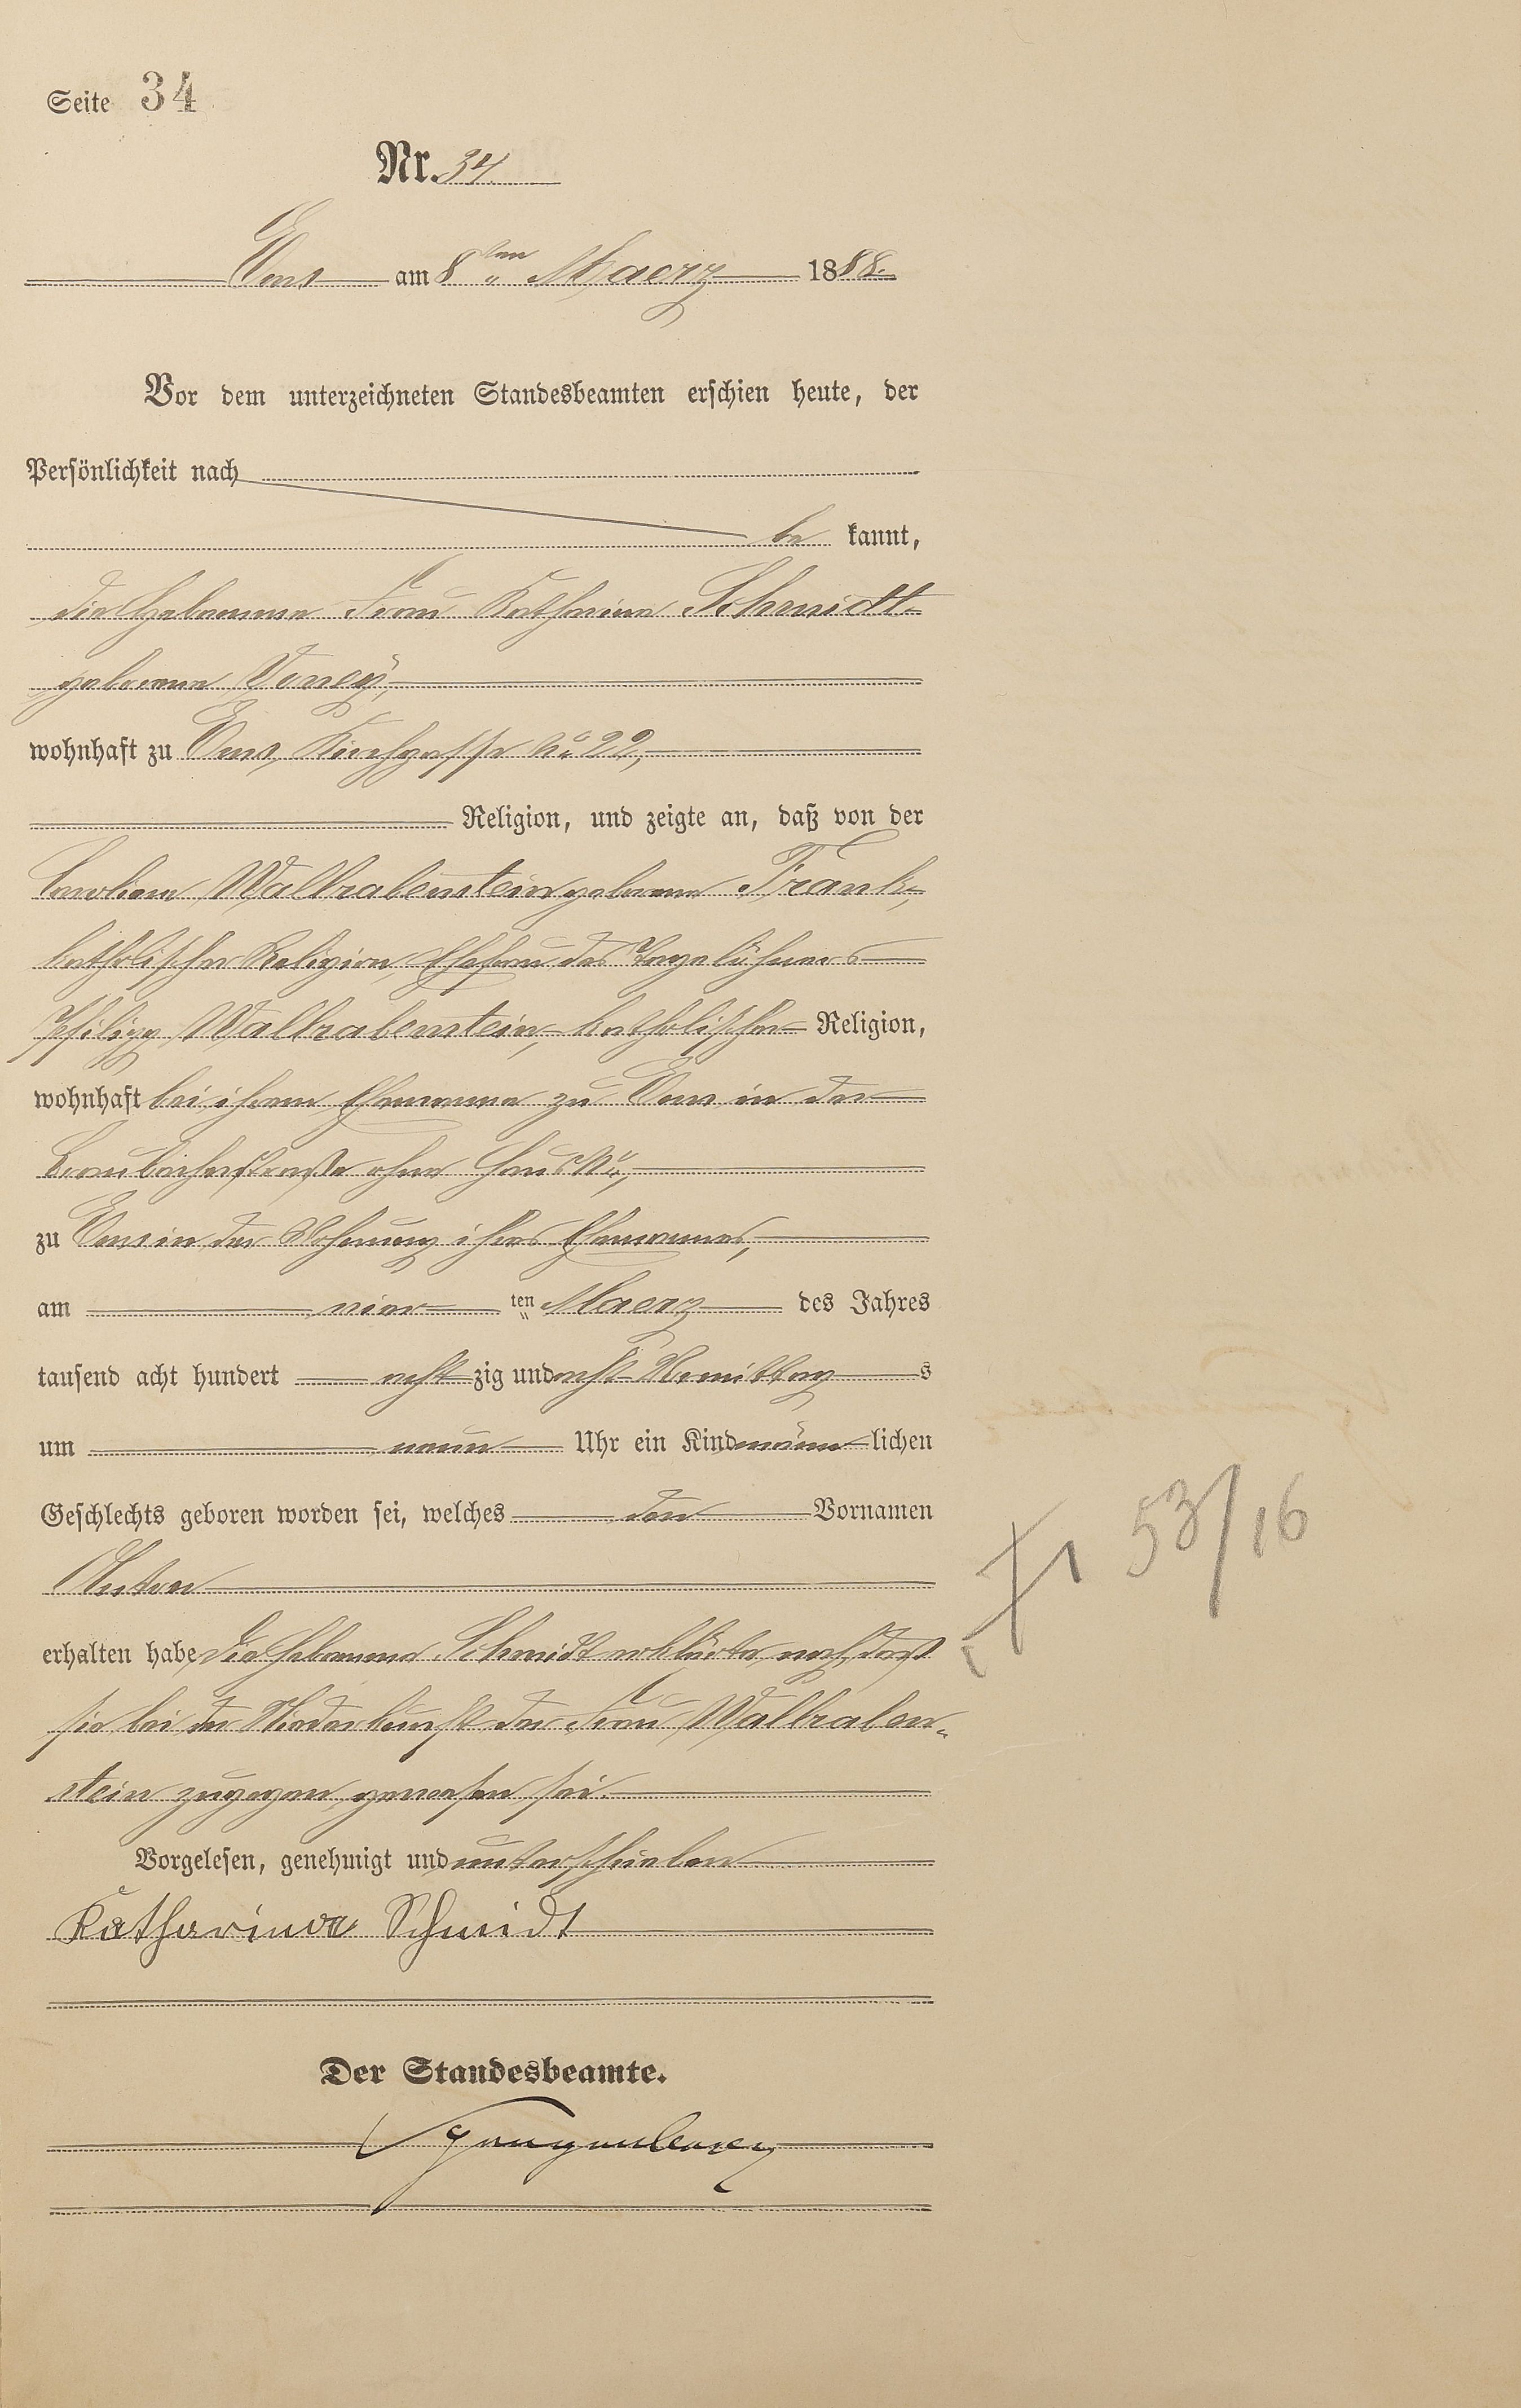 Seite 34
Nr. 34.
Ems am 8ten Maerz 1888.
Vor dem unterzeichneten Standesbeamten erschien heute, der
Persönlichkeit nach
be kannt,
die Hebamme Frau Katharina Schmidt
geborene
wohnhaft zu Ems, Kirchgasse No 22,
Religion, und zeigte an, daß von der
Walbrabenstein geborene Frank,
katholischer Religion, Ehefrau des Tagelöhners
Philipp Walbrabenstein, katholischer Religion,
wohnhaft bei ihrem Ehemanne zu Ems in der
Braubacherstraße ohne Haus No,
zu Ems in der Wohnung ihres Ehemannes,
am vier ten Maerz des Jahres
tausend acht hundert acht zig und acht Vormittag s
um neun Uhr ein Kind männ lichen
Geschlechts geboren worden sei, welches den Vornamen
Anton
erhalten habe. Die Hebamme Schmidt erklärte noch, daß
sie bei der Niederkunft der Frau Walbraben„
stein zugegen gewesen sei.
Vorgelesen, genehmigt und unterschrieben
Katharina Schmidt
Der Standesbeamte.
53/16